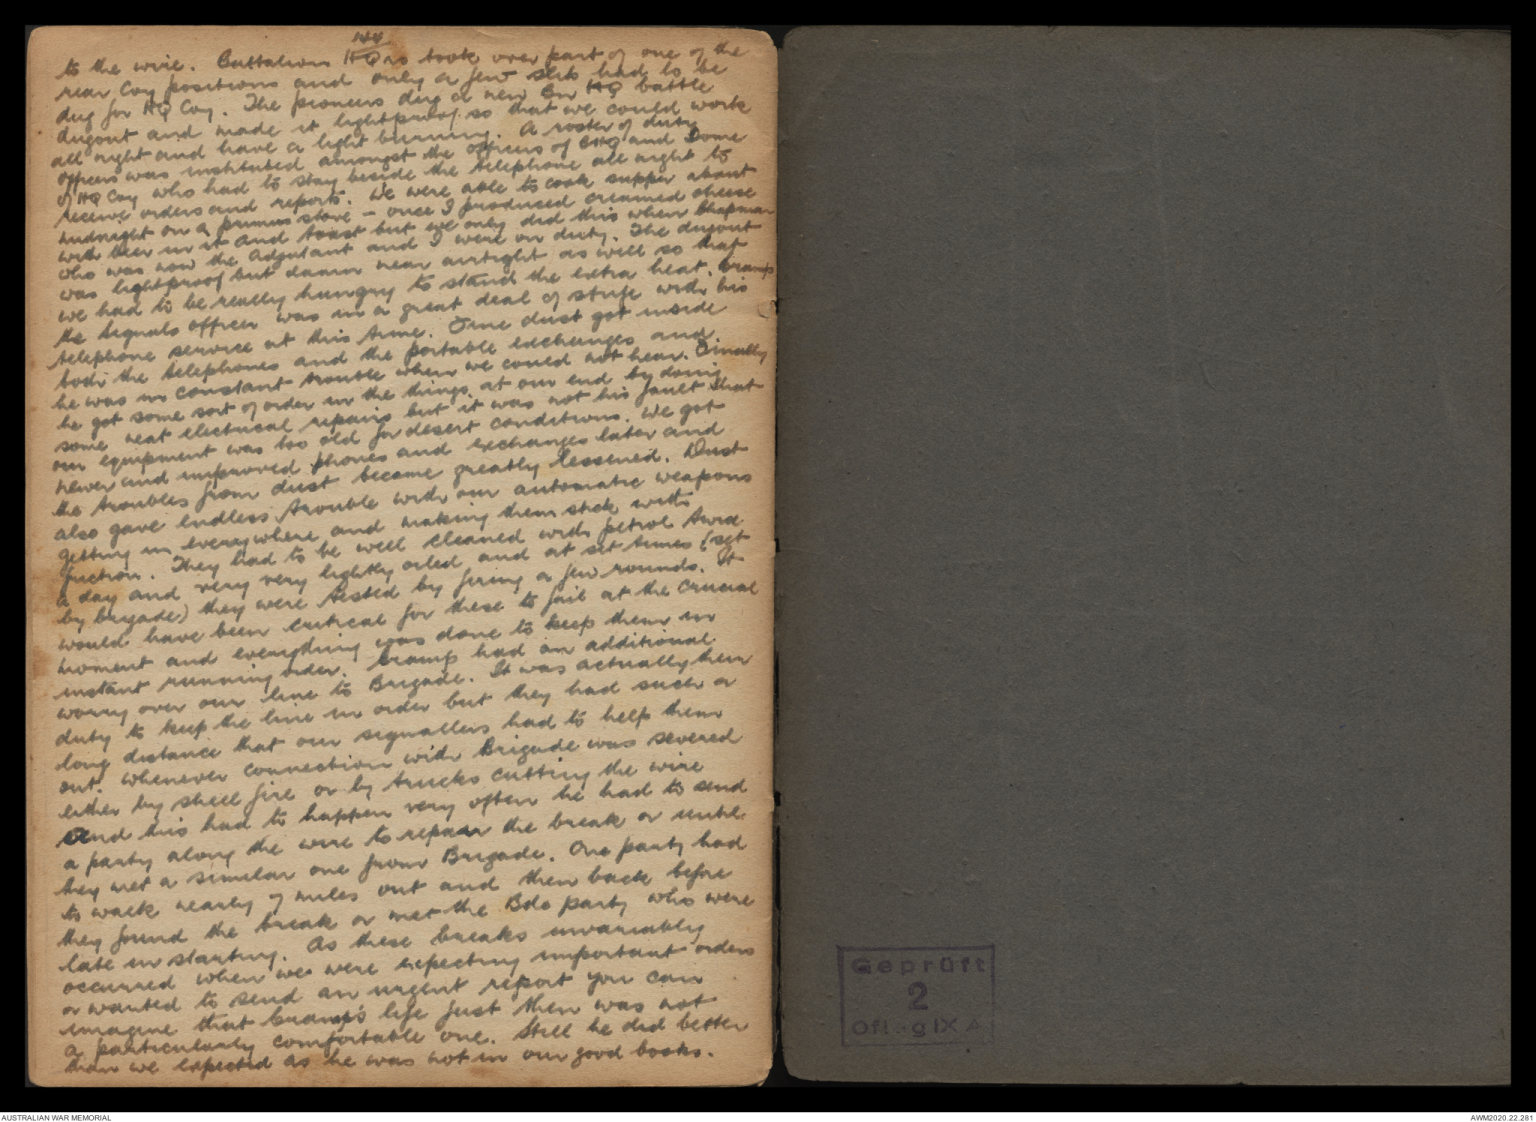 144
to the wire. Battalion HQrs took over part of one of the
rear Coy positions and only a few slits had to be
dug for HQ Coy. The pioneers dug a new Bn HQ battle
dugout and made it lightproof so that we could work
all night and have a light burning. A roster of duty
officers was instituted amongst the officers of BHQ and some
of HQ Coy who had to stay beside the telephone all night to
receive orders and reports. We were able to cook supper about
midnight on a primus stove - once I produced creamed cheese
with beer in it and toast but we only did this when Chapman
who was now the adjutant and I were on duty. The dugout
was lightproof but damn near airtight as well so that
we had to be really hungry to stand the extra heat. Cramp
the signals officer was in a great deal of strife with his
telephone service at this time. Fine dust got inside
both the telephones and the portable exchanges and
he was in constant trouble when we could not hear. Finally
he got some sort of order in the things at our end by doing
some neat electrical repairs but it was not his fault that
our equipment was too old for desert conditions. We got
newer and improved phones and exchanges later and
the troubles from dust became greatly lessened. Dust
also gave endless trouble with our automatic weapons
getting in everywhere and making them stick with
friction. They had to be well cleaned with petrol twice
a day and very very lightly oiled and at set times (set
by brigade) they were tested by firing a few rounds. It
would have been critical for these to fail at the crucial
moment and everything was done to keep them in
instant running order. Cramp had an additional
worry over our line to Brigade. It was actually their
duty to keep the line in order but they had such a
long distance that our signallers had to help them
out. Whenever connection with Brigade was severed
either by shell fire or by trucks cutting the wire
and this had to happen very often he had to send
a party along the wire to repair the break or until
they met a similar one from Brigade. One party had
to walk nearly 7 miles out and then back before
they found the break or met the Bde party who were
late in starting. As these breaks invariably
occurred when we were expecting important orders
or wanted to send an urgent report you can
imagine that Cramp's life just then was not
a particularly comfortable one. Still he did better
than we expected as he was not in our good books.
Geprüft
2
Oflag IX A
AUSTRALIAN WAR MEMORIAL
AWM2020.22.281